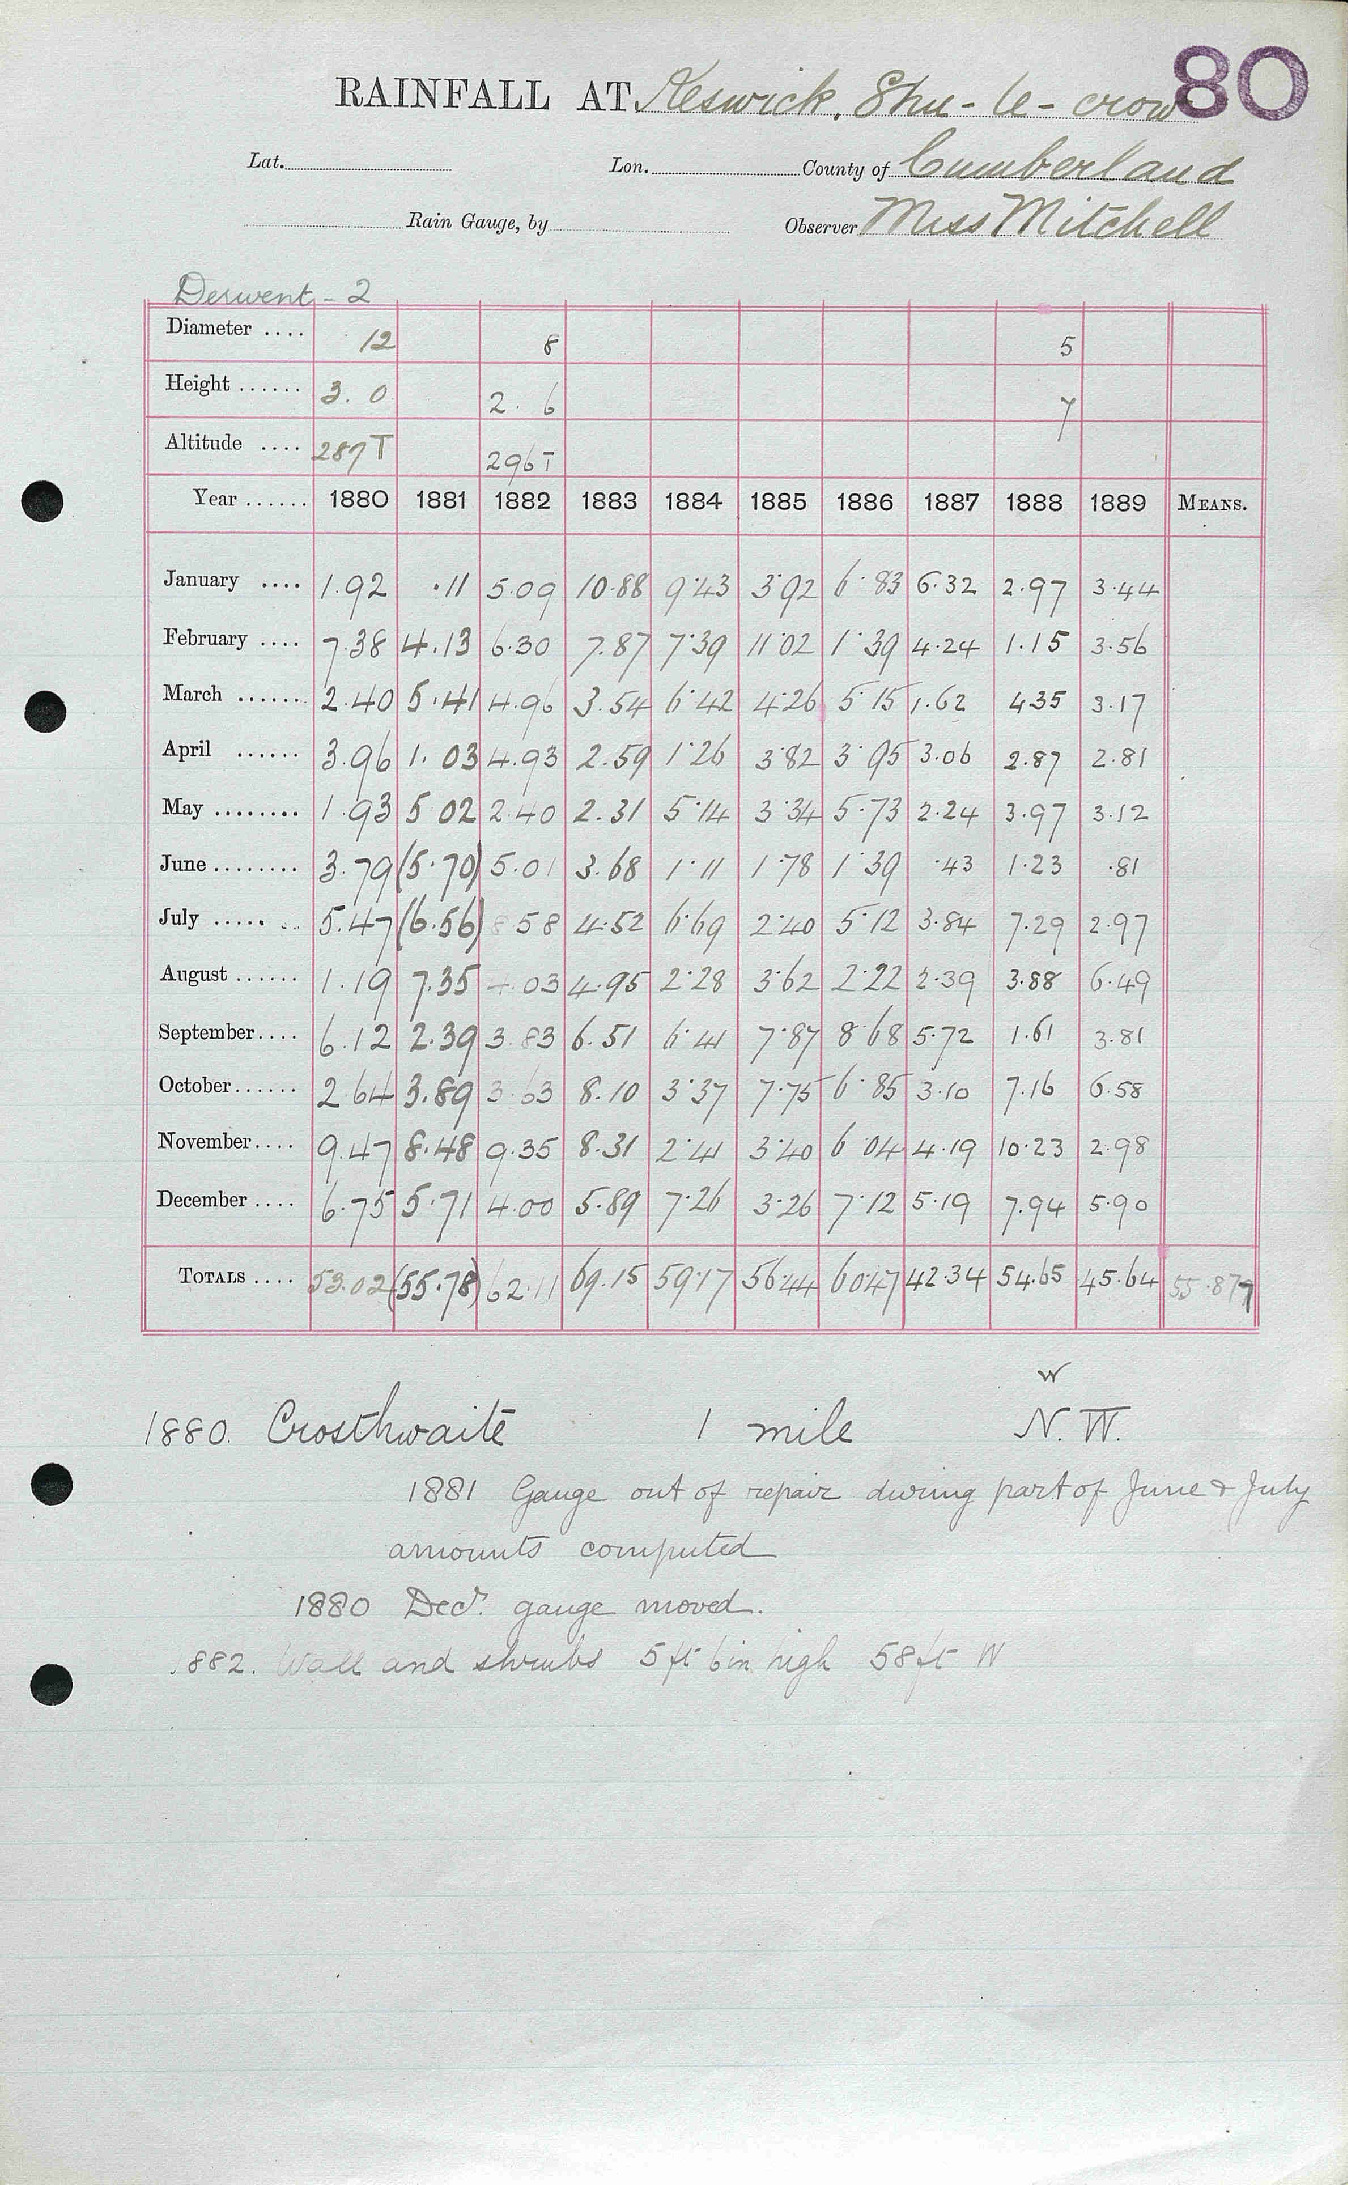 80
RAINFALL AT Keswick, Shu-le-crow
Lat. Lon. County of Cumberland
Rain Gauge, by Observer Miss Mitchell
Derwent - 2
Diameter .... 12 8 5
Height ...... 3. 0 2. 6 7
Altitude .... 287 T 296 T
Year ...... 1880 1881 1882 1883 1884 1885 1886 1887 1888 1889 MEANS.
January .... 1.92 .11 5.09 10.88 9.43 3.92 6.83 6.32 2.97 3.44
February .... 7.38 4.13 6.30 7.87 7.39 11.02 1.39 4.24 1.15 3.56
March ....... 2.40 5.41 4.96 3.54 6.42 4.26 5.15 1.62 4.35 3.17
April ...... 3.96 1.03 4.93 2.59 1.26 3.82 3.95 3.06 2.87 2.81
May ........ 1.93 5.02 2.40 2.31 5.14 3.34 5.73 2.24 3.97 3.12
June ........ 3.79 (5.70) 5.01 3.68 1.11 1.78 1.39 .43 1.23 .81
July ..... .. 5.47 (6.56) 8.58 4.52 6.69 2.40 5.12 3.84 7.29 2.97
August ...... 1.19 7.35 4.03 4.95 2.28 3.62 2.22 2.39 3.88 6.49
September .... 6.12 2.39 3.83 6.51 6.41 7.87 8.68 5.72 1.61 3.81
October ...... 2.64 3.89 3.63 8.10 3.37 7.75 6.85 3.10 7.16 6.58
November .... 9.47 8.48 9.35 8.31 2.41 3.40 6.04 4.19 10.23 2.98
December .... 6.75 5.71 4.00 5.89 7.26 3.26 7.12 5.19 7.94 5.90
TOTALS .... 53.02 (55.78) 62.11 69.15 59.17 56.44 60.47 42.34 54.65 45.64 55.877
W
1880. Crosthwaite 1 mile N.W.
1881 Gauge out of repair during part of June & July
amounts computed
1880 Decr. gauge moved.
1882. Wall and shrubs 5 ft 6 in high 58 ft W